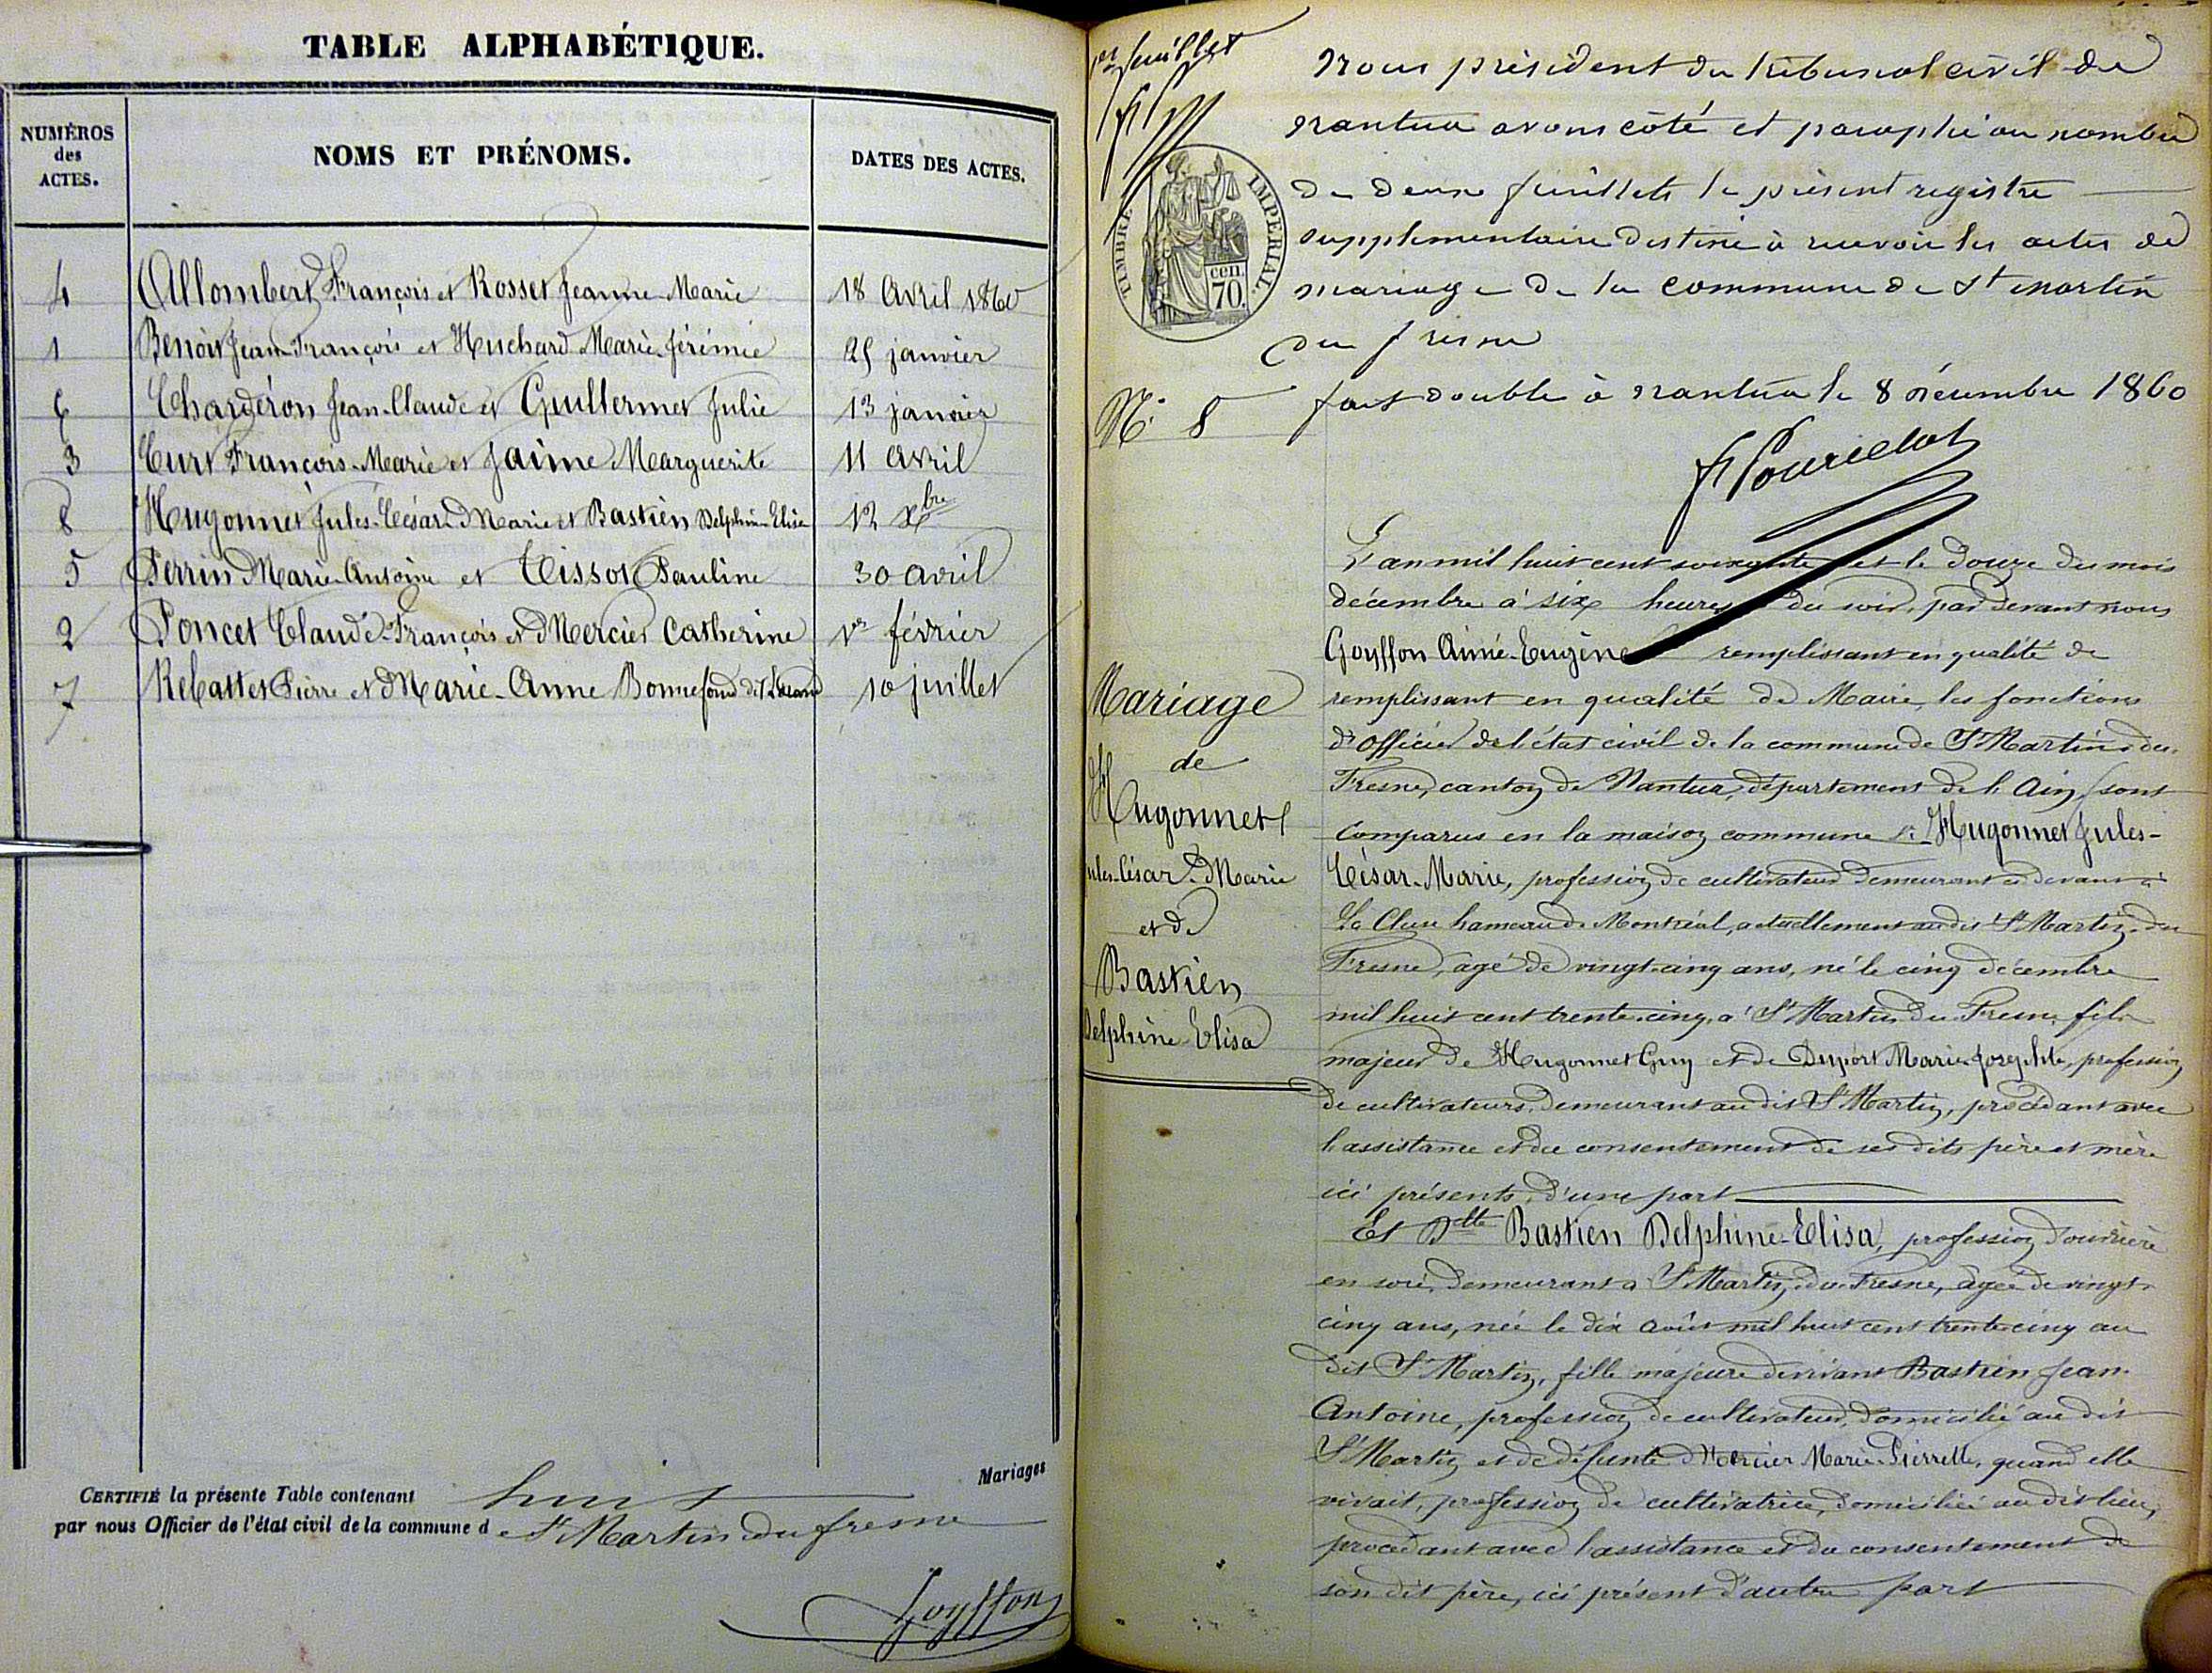 TABLE ALPHABÉTIQUE.
NUMÉROS des ACTES.
NOMS ET PRÉNOMS.
DATES DES ACTES.
4 Allombert François et Rosset Jeanne-Marie 18 avril 1860
1 Benoit Jean-François et Huchard Marie-Jérémie 25 janvier
6 Charderon Jean-Claude et Guillermet Julie 13 janvier
3 Curt François-Marie et Jaime Marguerite 11 avril
8 Hugonnet Jules-César-Marie et Bastien Delphine-Elisa 12 Xbre
5 Perrin Marie-Antoine et Tissot Pauline 30 avril
2 Poncet Claude-François et Mercier Catherine 1er février
7 Rebattet Pierre et Marie-Anne Bonnefond dit 10 juillet
Mariages
CERTIFIÉ la présente Table contenant huit
par nous Officier de l'état civil de la commune de St Martin du fresne
Goyffon
1er feuillet
TIMBRE IMPÉRIAL
cen. 70.
Nous président du tribunal civil de
nantua avons côté et paraphé au nombre
de deux feuillets le présent registre
supplémentaire destiné à recevoir les actes de
mariage de la commune de St Martin
du fresne
fait double à nantua le 8 décembre 1860
N° 8
L'an mil huit cent soixante et le douze du mois
décembre à six heures du soir, par devant nous
Goyffon Aimé-Eugène remplissant en qualité de
remplissant en qualité de Maire, les fonctions
d'officier de l'état civil de la commune de St Martin-du-
Fresne, canton de Nantua, département de l'Ain, sont
comparus en la maison commune Sr Hugonnet Jules-
César-Marie, profession de cultivateur demeurant ci-devant à
La Cluse hameau de Montréal, actuellement au dit St Martin-du-
Fresne, âgé de vingt-cinq ans, né le cinq décembre
mil huit cent trente-cinq, à St Martin du Fresne, fils
majeur de Hugonnet Guy et de Duport Marie-Josephte, profession
de cultivateurs, demeurant au dit St Martin, procédant avec
l'assistance et du consentement de ses dits père et mère
ici présents, d'une part
Mariage
de
Hugonnet
Jules-César-Marie
et de
Bastien
Delphine-Elisa
Et Dlle Bastien Delphine-Elisa, profession d'ouvrière
en soie, demeurant à St Martin-du-Fresne, âgée de vingt-
cinq ans, née le dix août mil huit cent trente-cinq au
dit St Martin, fille majeure de vivant Bastien Jean-
Antoine, profession de cultivateur, domicilié au dit
St Martin et de défunte Mercier Marie-Pierrette, quand elle
vivait, profession de cultivatrice, domiciliée au dit lieu,
procédant avec l'assistance et du consentement de
son dit père, ici présent d'autre part